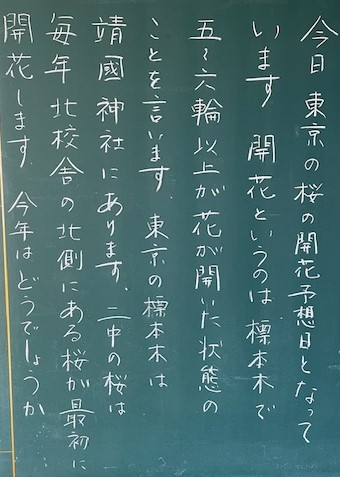 今日 東京の桜の開花予想日となって
います 開花というのは標本木で
五~六輪以上が花が開いた状態の
ことを言います。東京の標本木は
靖國神社にあります。二中の桜は
毎年北校舎の北側にある桜が最初に
開花します。今年はどうでしょうか